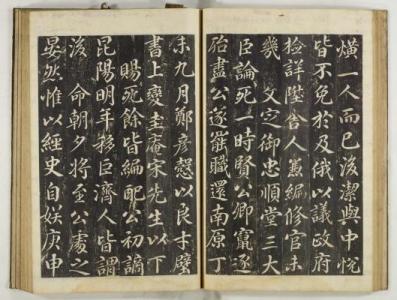 熿一人而已後潔與中悅
皆不免於及俄以議政府
檢詳陞舍人兼編修官未
幾 文定御忠順堂三大
臣論死一時賢公卿竄逐
殆盡公遂罷職還南原丁
未九月鄭彥愨以良才壁
書上變圭庵宋先生以下
賜死餘皆編配公初謫
昆陽明年移巨濟人皆謂
後命朝夕將至公處之
晏然惟以經史自娛庚申